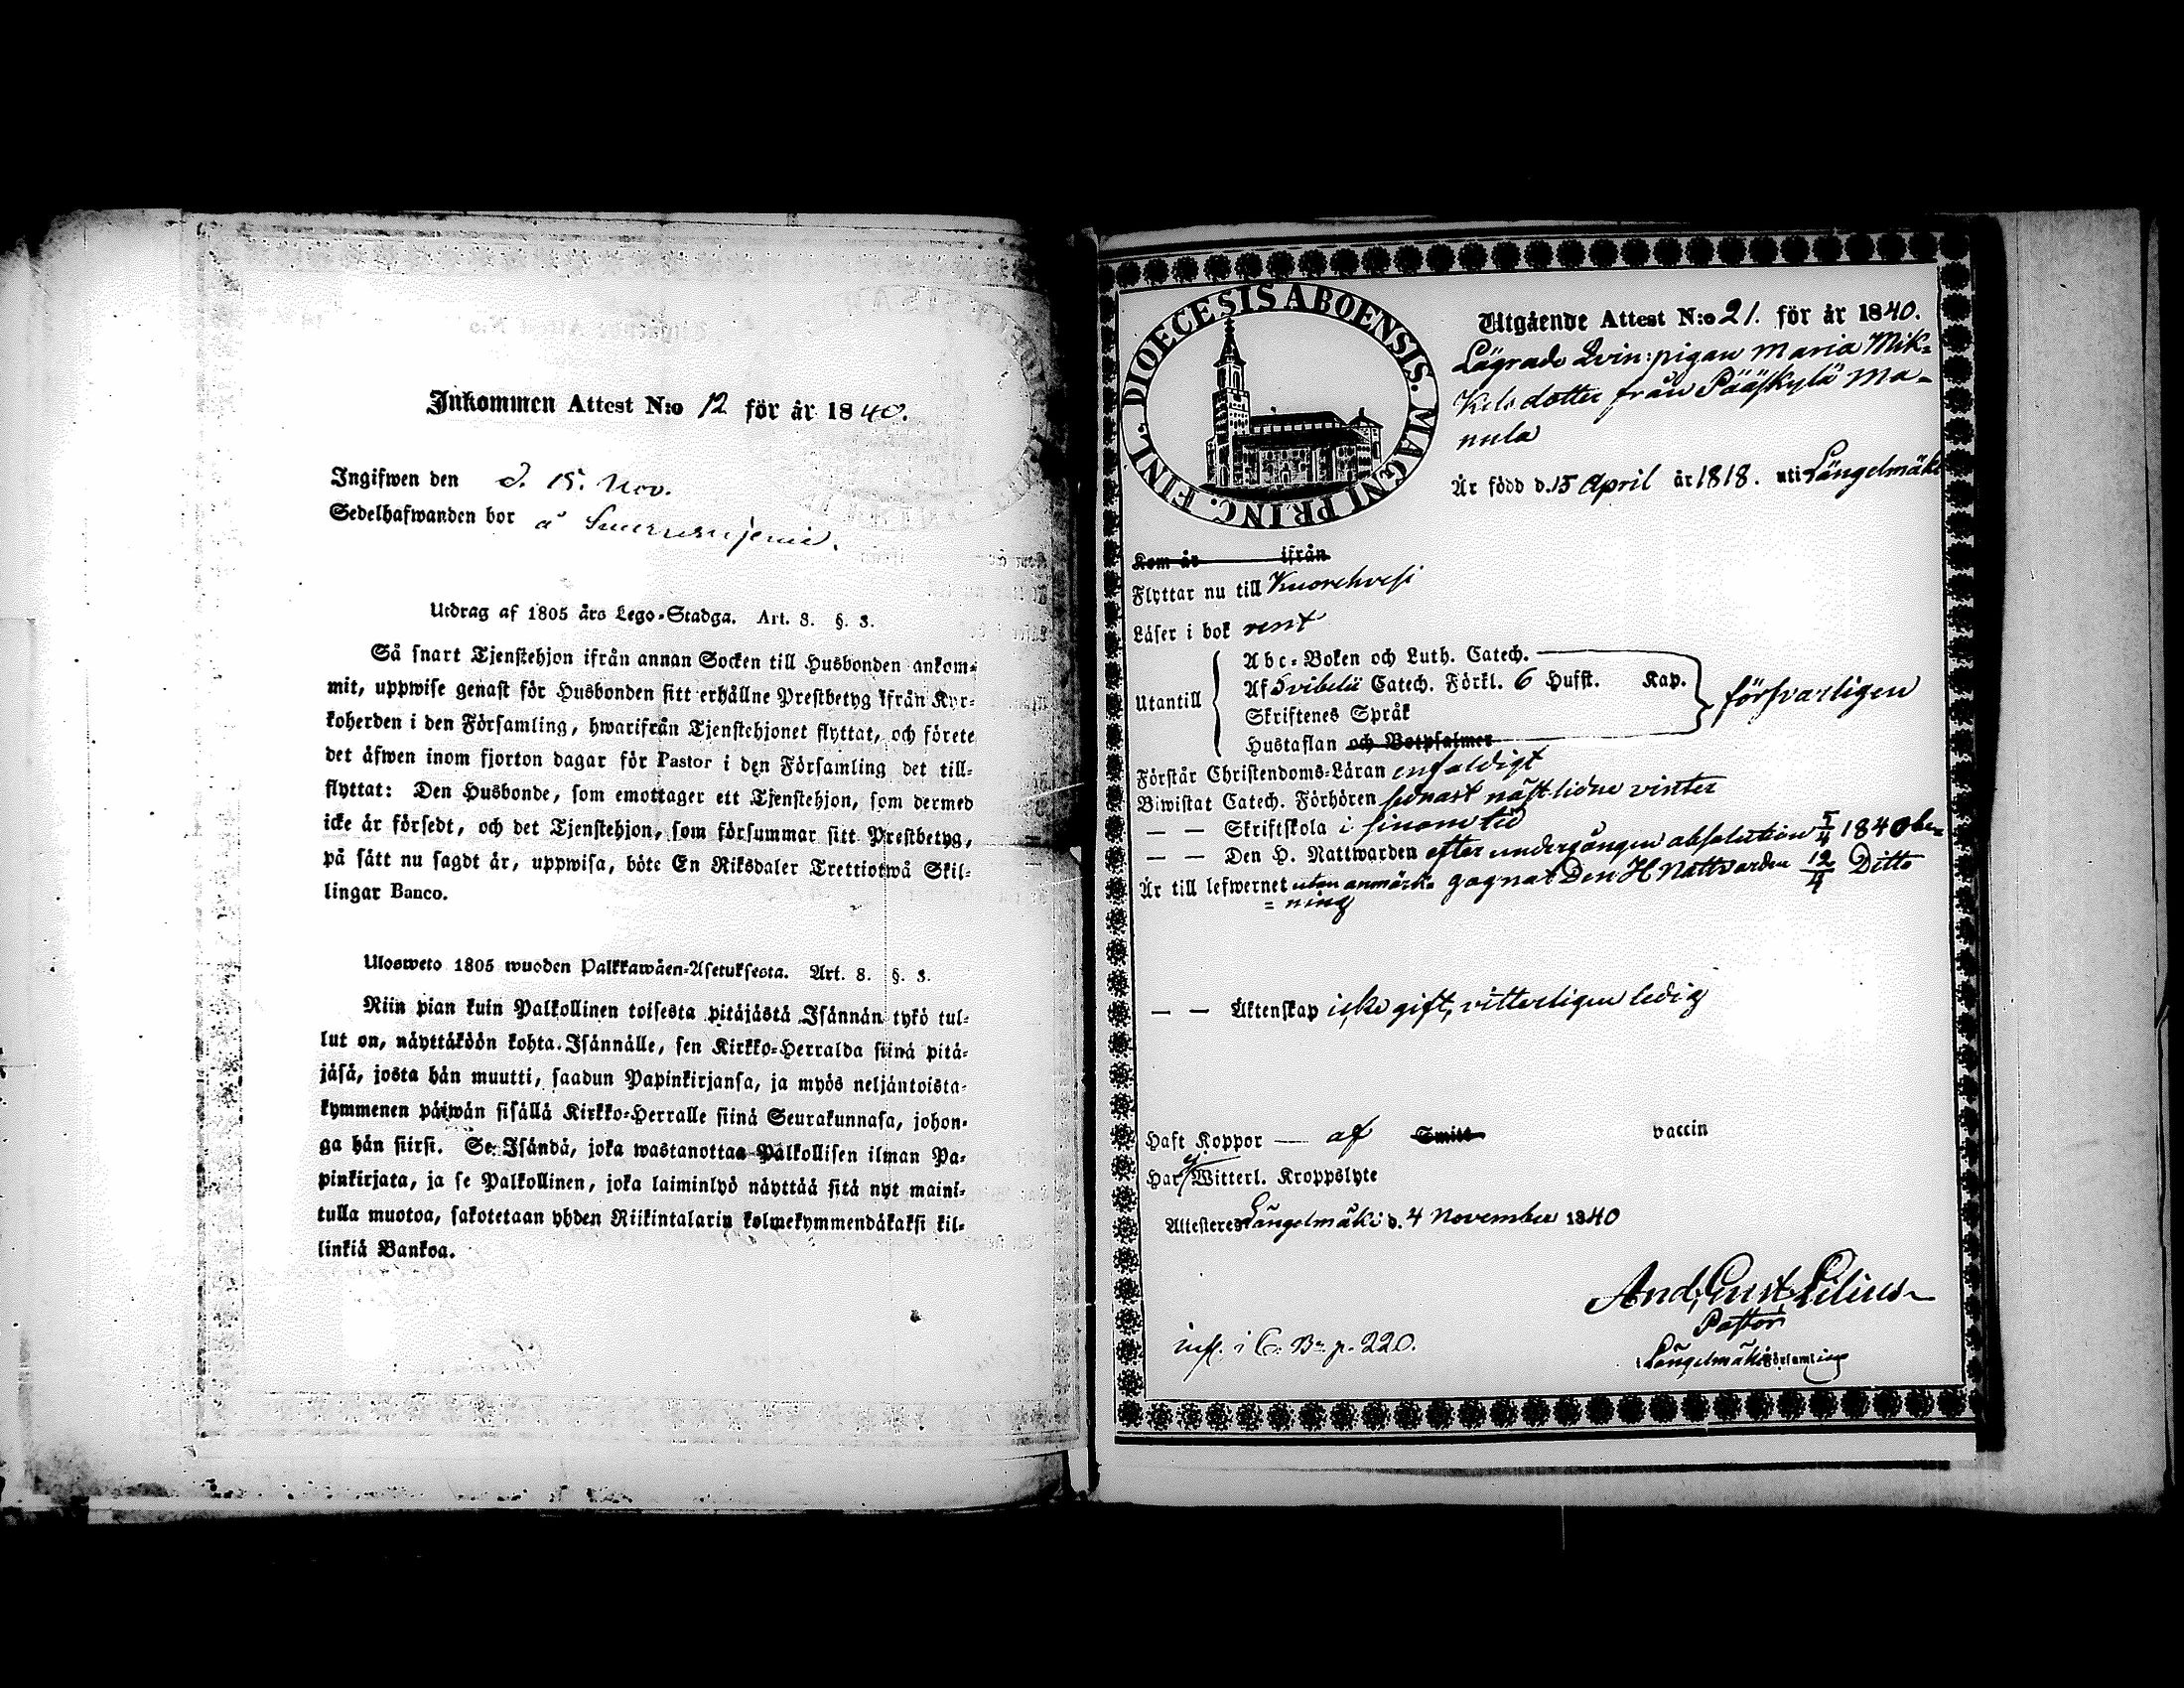 Inkommen Attest N:o 12 för år 1840.
Ingifwen den d. 15. Nov.
Sedelhafwanden bor å
Utdrag af 1805 års Lego-Stadga. Art. 8. §. 3.
Så snart Tjenstehjon ifrån annan Socken till Husbonden ankom-
mit, uppwise genast för Husbonden sitt erhållne Prestbetyg ifrån Kyr-
koherden i den Församling, hwarifrån Tjenstehjonet flyttat, och förete
det äfwen inom fjorton dagar för Pastor i den Församling det till-
flyttat: Den Husbonde, som emottager ett Tjenstehjon, som dermed
icke är försedt, och det Tjenstehjon, som försummar sitt Prestbetyg,
på sätt nu sagdt är, uppwisa, böte En Riksdaler Trettiotwå Skil-
lingar Banco.
Ulosweto 1805 wuoden Palkkawäen-Asetuksesta. Art. 8. §. 3.
Niin pian kuin Palkollinen toisesta pitäjästä Isännän tykö tul-
lut on, näyttäköön kohta Isännälle, sen Kirkko-Herralda siinä pitä-
jäsä, josta hän muutti, saadun Papinkirjansa, ja myös neljäntoista-
kymmenen päiwän sisällä Kirkko-Herralle siinä Seurakunnasa, johon-
ga hän siirsi. Se Isändä, joka wastanottaa Palkollisen ilman Pa-
pinkirjata, ja se Palkollinen, joka laiminlyö näyttää sitä nyt maini-
tulla muotoa, sakotetaan yhden Riikintalarin kolmekymmendäkaksi kil-
linkiä Bankoa.
DIOECESIS ABOENSIS. MAGNI PRINC. FINL.
Utgående Attest N:o 21. för år 1840.
Lägrade Qvin:pigan Maria Mik-
kelsdotter från Pääskylä Ma-
nula
Är född d. 15 April år 1818. uti Längelmäki
Kom år ifrån
Flyttar nu till Kuorehvesi
Läser i bok rent
Utantill
Abc-Boken och Luth. Catech.
Af Svibelii Catech. Förkl. 6 Hufst. Kap.
Skriftenes Språk
Hustaflan och Botpsalmer
försvarligen
Förstår Christendoms-Läran enfaldigt
Biwistat Catech. Förhören sednast näst lidne vinter
— — Skriftskola i sinom tid
— — Den H. Nattwarden efter undergången absolution 5/4 1840 be-
Är till lefwernet utan anmärk- gagnat Den H Nattvarden 12/4 Ditto
= ning
— — Äktenskap icke gift, vitterligen ledig
Haft Koppor — af Smitt vaccin
Har ej Witterl. Kroppslyte
Attesteres Längelmäki d. 4 November 1840
And. Gust. Lilius
Pastor
i Längelmäki Församling
infl. i C. B. p. 220.